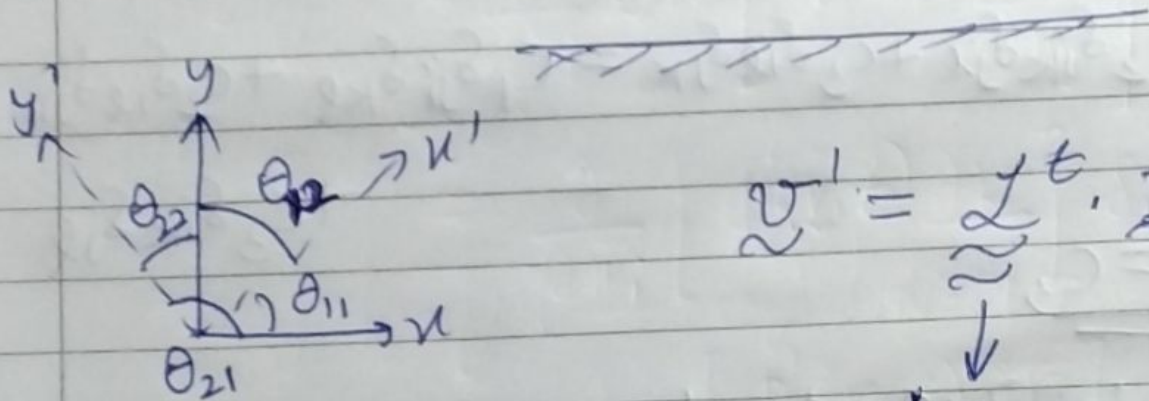 y'
y
x'
θ22
θ12
θ11
x
θ21
v' = L^t ·